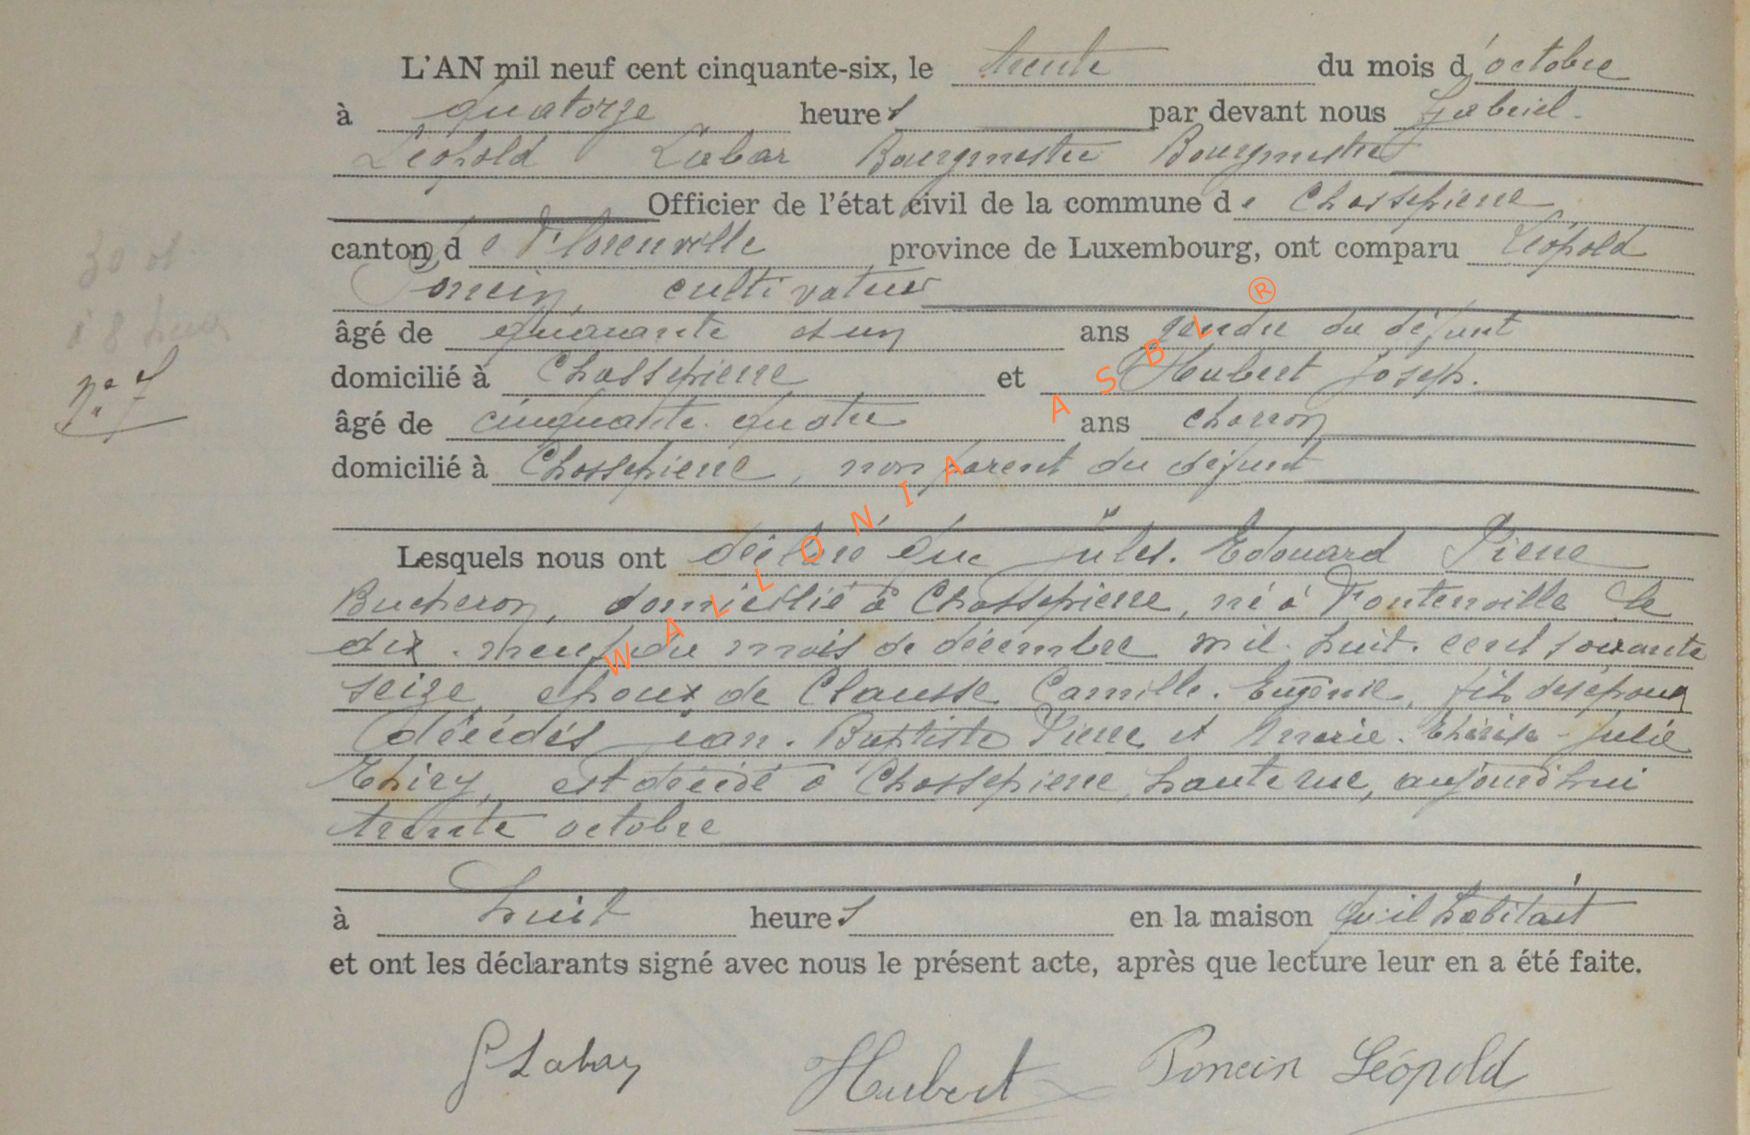 L'AN mil neuf cent cinquante-six, le trente du mois d'octobre
à quatorze heures par devant nous Gabriel
Léopold Labar Bourgmestre Bourgmestre
Officier de l'état civil de la commune de Chassepierre
30 8t
canton de Florenville province de Luxembourg, ont comparu Léopold
Poncin, cultivateur
à 8 heures
âgé de quarante et un ans gendre du défunt
n° 7
domicilié à Chassepierre et Hubert Joseph.
âgé de cinquante-quatre ans charron
domicilié à Chassepierre, non parent du défunt
Lesquels nous ont déclaré que Jules. Edouard Pierre
Bucheron, domicilié à Chassepierre, né à Fontenoille le
dix-neuf du mois de décembre mil huit cent soixante
seize, époux de Clausse Camille. Eugénie, fils des époux
décédés Jean-Baptiste Pierre et Marie-Thérèse-Julie
Thiry, est décédé à Chassepierre, haute rue, aujourd'hui
trente octobre
à huit heures en la maison qu'il habitait
et ont les déclarants signé avec nous le présent acte, après que lecture leur en a été faite.
G Labar Hubert Poncin Léopold
WALLONIA ASBL ®